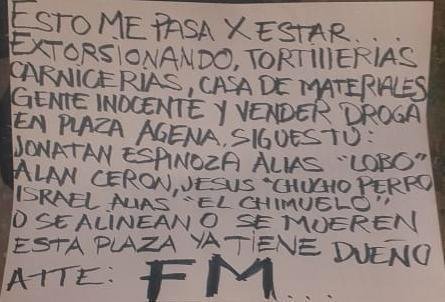 ESTO ME PASA X ESTAR...
EXTORSIONANDO, TORTIIIERIAS
CARNICERIAS, CASA DE MATERIALES
GENTE INOCENTE Y VENDER DROGA
EN PLAZA AGENA. SIGUES TU:
JONATAN ESPINOZA ALIAS "LOBO"
ALAN CERON, JESUS "CHUCHO PERRO
ISRAEL ALIAS "EL CHIMUELO"
O SE ALINEAN O SE MUEREN
ESTA PLAZA YA TIENE DUEÑO
ATTE: FM...